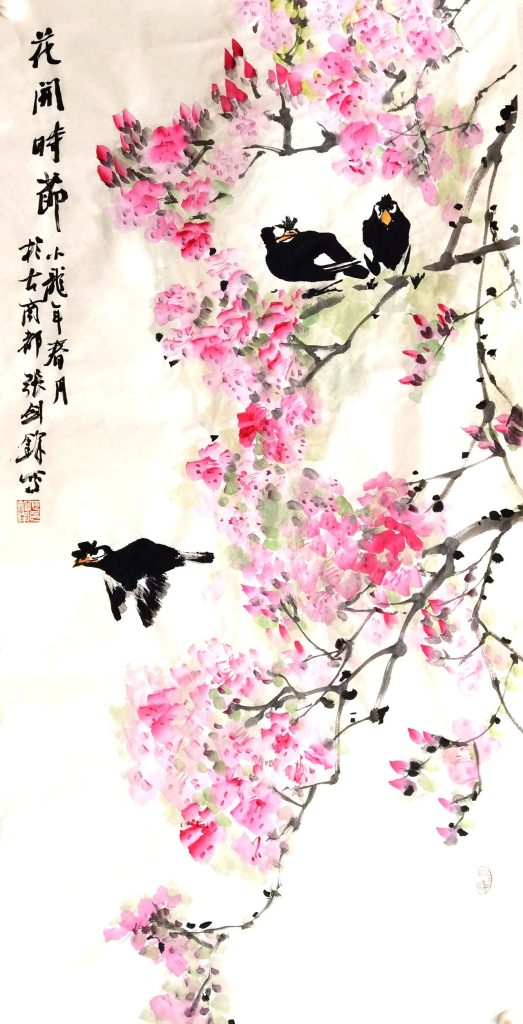 花開時節
小龍年春月
於古商都張剑錚写